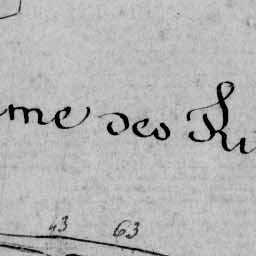 me des Ri
43 63